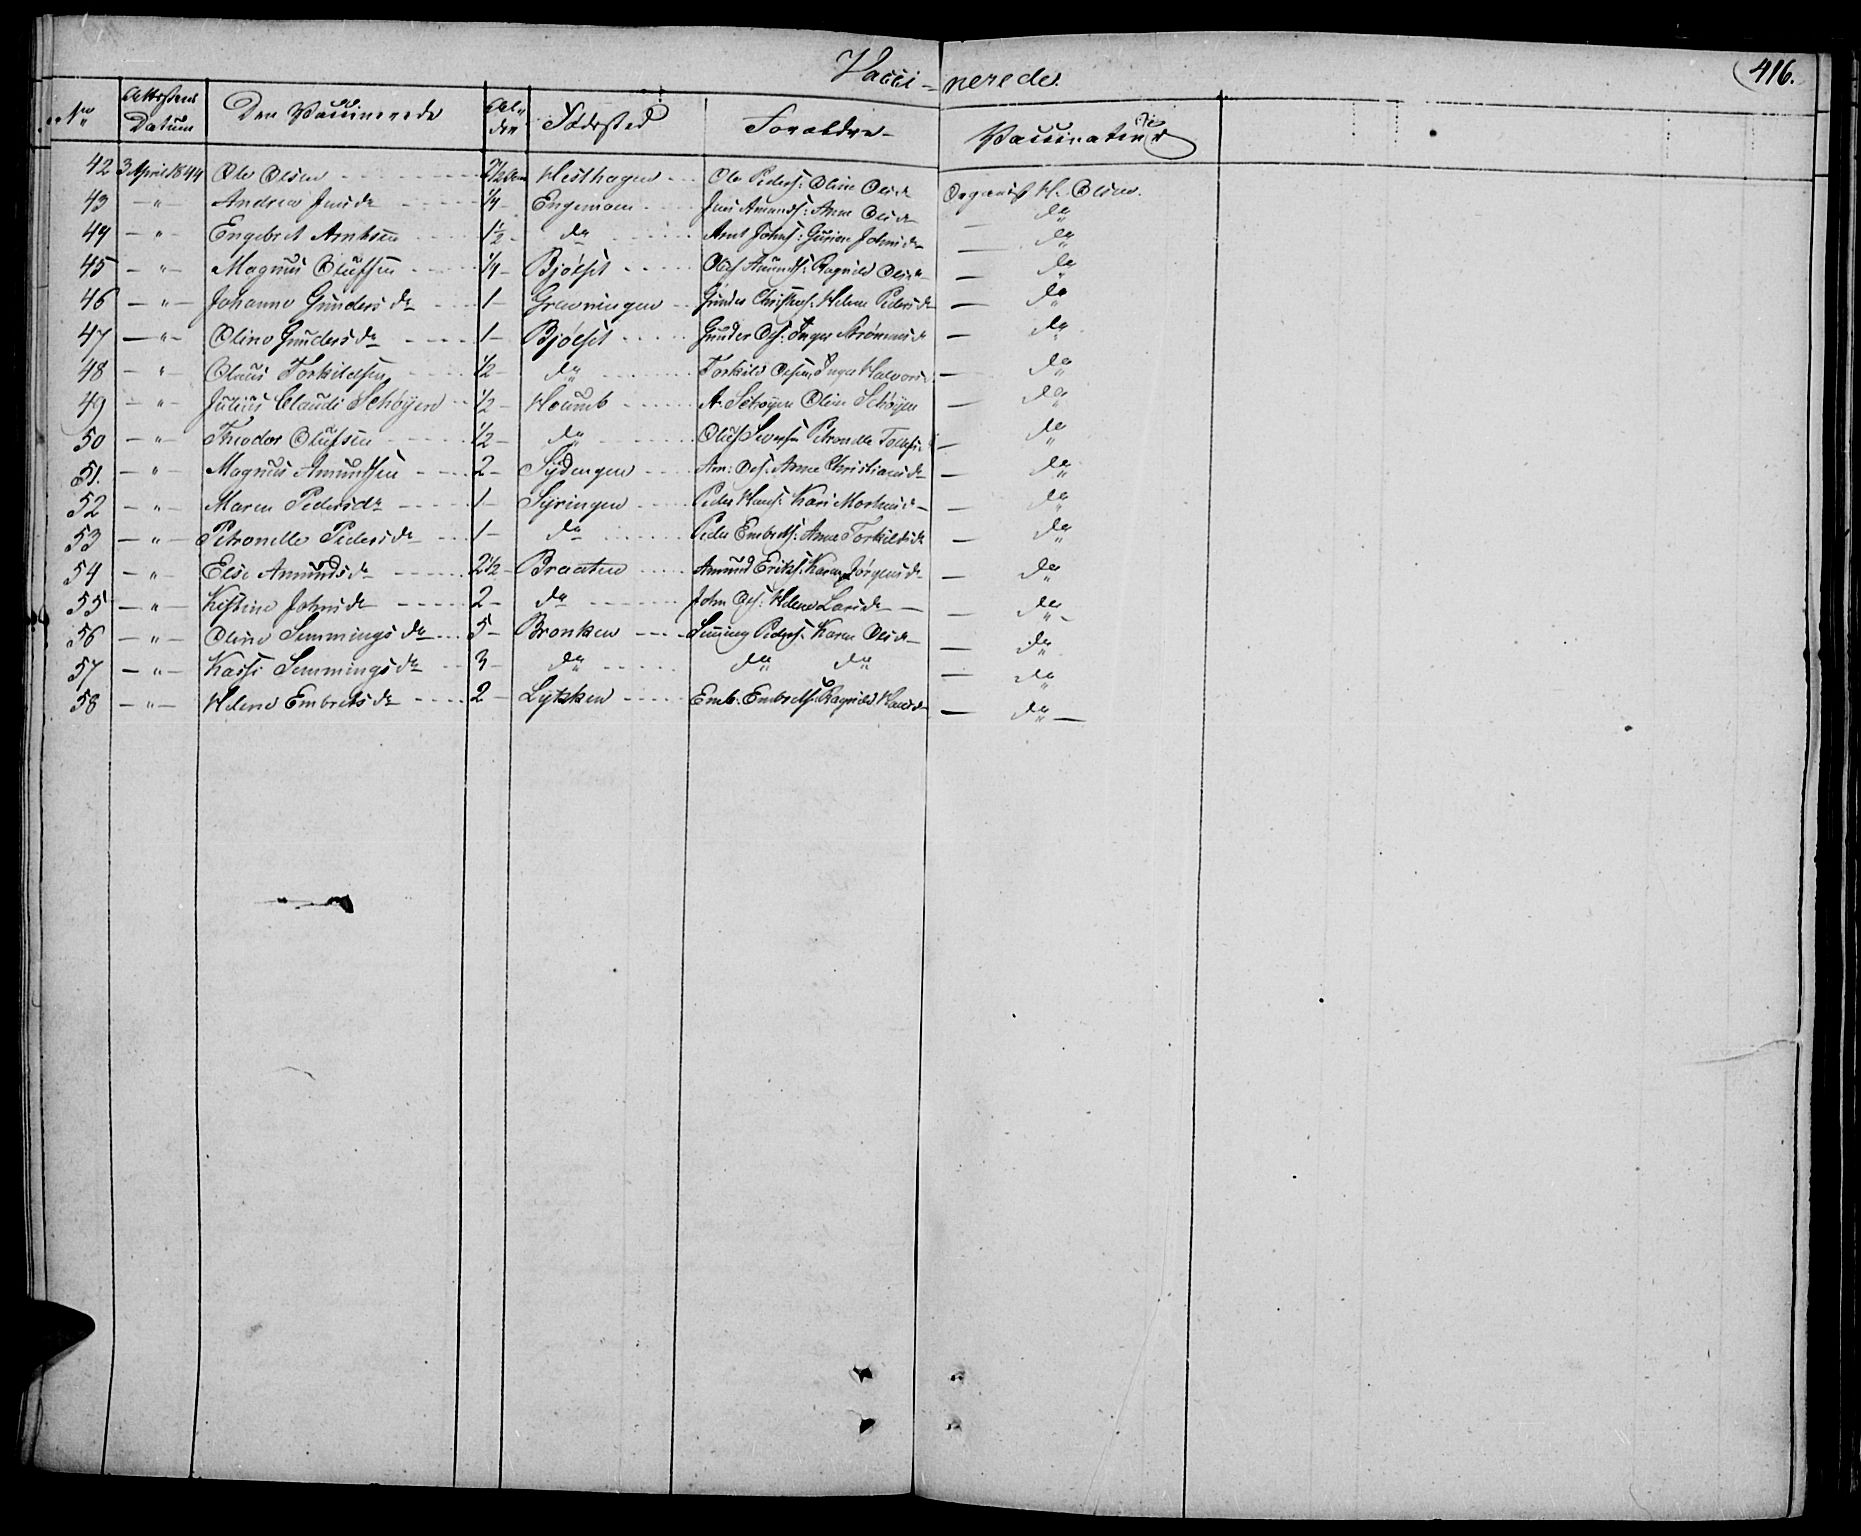 Vacci- nerede. 416.
No Attestens Datum Den Vaccinerede Alder Fødested Forældre Vaccinateur
42 3 April 1844 Ole Olsen Hesthagen Ole Peders: Oline Olsdr Organist H. Olsen.
43 — " — Andrea Jensdr 1/4 Engemoen Jens Amunds: Anne Olsdr — do
44 — " — Engebret Arntsen 1 1/2 do Arnt Johns: Johnsdr — do
45 — " — Magnus Olufsen 1/4 Bjølset Oluf Amunds: Ragnild Olsdr — do
46 — " — Johanne Gundersdr 1 Grønningen Gunder Christens: Helene Pedersdr — do
47 — " — Oline Gundersdr 1 Bjølset Gunder Ols: Inger Strømensdr — do
48 — " — Olaus Torkildsen 1/2 do Torkild Olsen, Inger Halvorsd — do
49 — " — Julius Claudi Schøyen 1/2 Houmb A. Schøyen Oline Schøyen — do
50 — " — Theodor Olufsen 1/2 do Oluf Petronelle — do
51. — " — Magnus Amundsen 2 Sydengen Am: Ols: Anne Christiansdr — do
52 — " — Maren Pedersdr 1 Syringen Peder Hans: Kari Mortensdr — do
53 — " — Petronelle Pedersdr 1 do Peder Embrets: Anne Torkildsdr — do
54 — " — Else Amundsdr 2 1/2 Braaten Amund Eriks: Karen Jørgensdr — do
55 — " — Kistine Johnsdr 2 do John Ols: Helene Larsdr — do
56 — " — Oline Semmingsdr 5 Bronken Semming Peders: Karen Olsdr — do
57 — " — Kassi Semmingsdr 3 do do do — do
58 — " — Helene Embretsdr 2 Lytsken Emb: Embrets: Ragnild Hansdr — do —